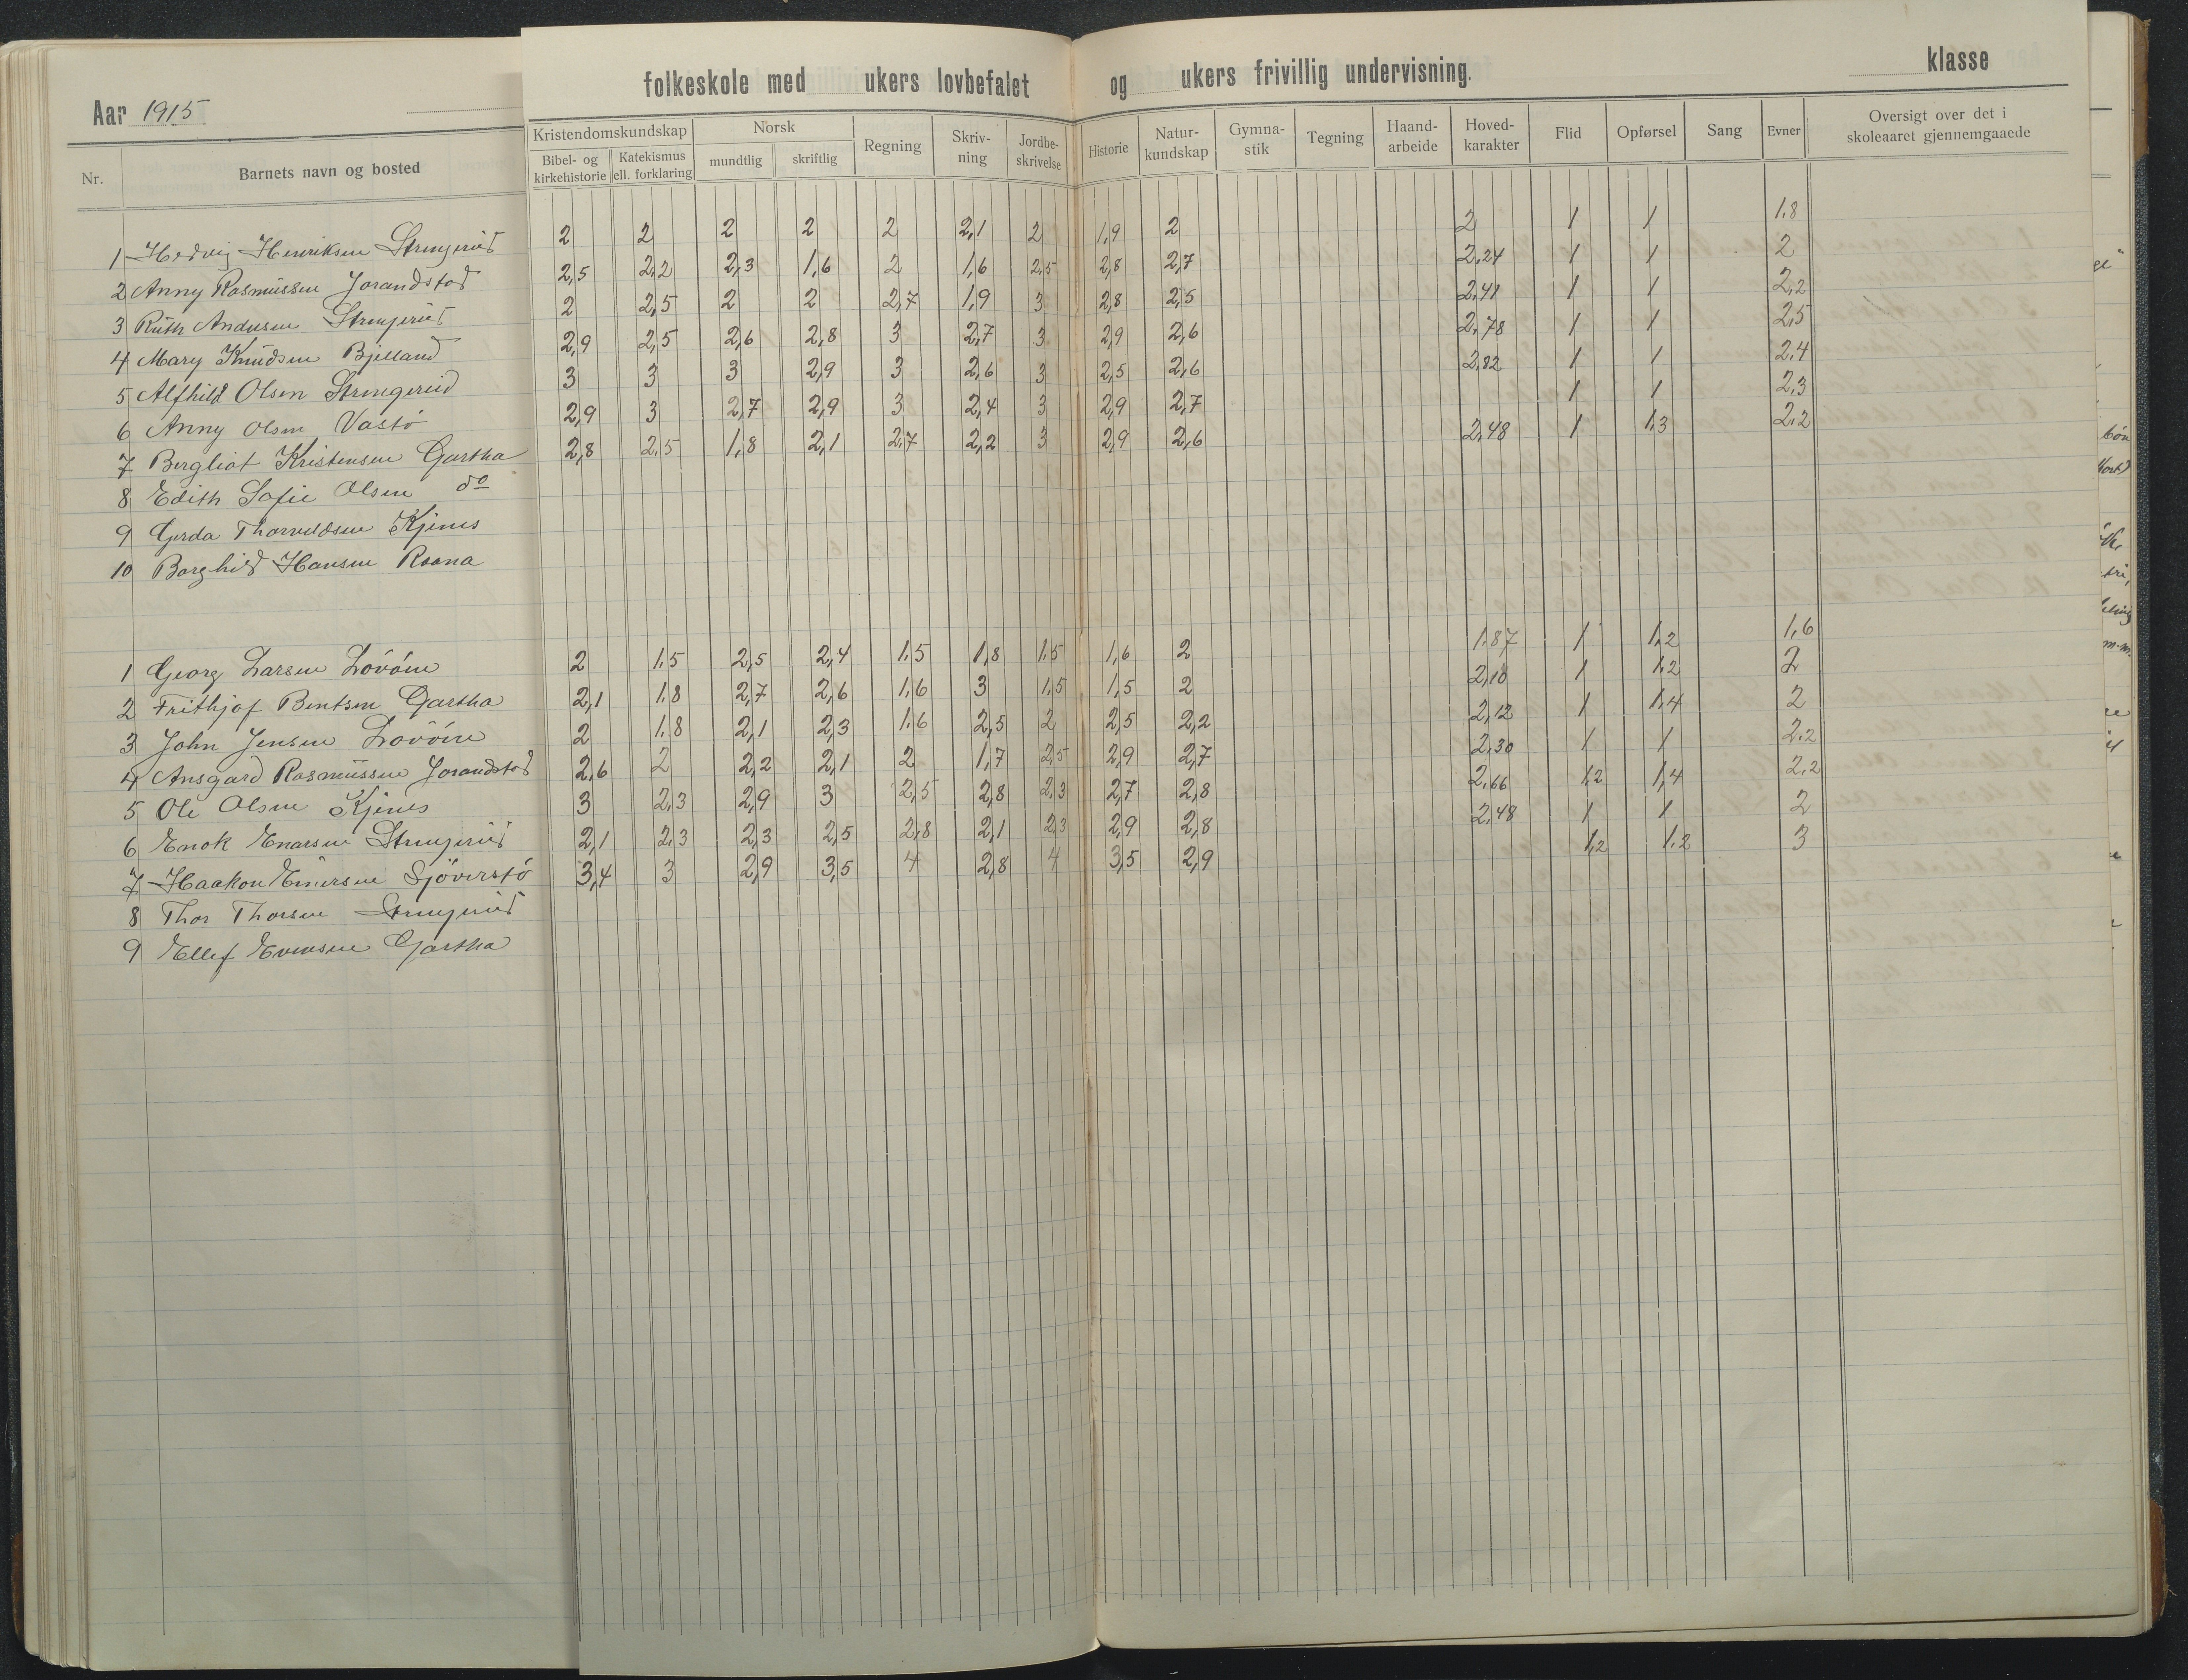 folkeskole med ukers lovbefalet og ukers frivillig undervisning. klasse
Aar 1915
Nr. Barnets navn og bosted
Kristendomskundskap Norsk Regning Skriv-ning Jordbe-skrivelse Historie Natur-kundskap Gymna-stik Tegning Haand-arbeide Hoved-karakter Flid Opførsel Sang Evner Oversigt over det i skoleaaret gjennemgaaede
Bibel- og kirkehistorie Katekismus ell. forklaring mundtlig skriftlig
1 Hedvig Henriksen 2 2 2 2 2 2,1 2 1,9 2 2 1 1 1.8
2 Anny Rasmussen Jorandstad 2,5 2,2 2,3 1,6 2 1,6 2,5 2,8 2,7 2,24 1 1 2
3 Ruth Andersen 2 2,5 2 2 2,7 1,9 3 2,8 2,5 2,41 1 1 2,2
4 Mary Knudsen Bjelland 2,9 2,5 2,6 2,8 3 2,7 3 2,9 2,6 2,78 1 1 2,5
5 Alfhild Olsen 3 3 3 2,9 3 2,6 3 2,5 2,6 2,82 1 1 2,4
6 Anny Olsen Vastö 2,9 3 2,7 2,9 3 2,4 3 2,9 2,7 1 1 2,3
7 Bergliot Kristensen Gartha 2,8 2,5 1,8 2,1 2,7 2,2 3 2,9 2,6 2,48 1 1,3 2,2
8 Edith Sofie Olsen do
9 Gerda Thorvaldsen Kjenes
10 Borghild Hansen Roana
1 Georg Larsen 2 1,5 2,5 2,4 1.5 1,8 1,5 1,6 2 1.87 1 1,2 1,6
2 Frithjof Bentsen Gartha 2,1 1,8 2,7 2,6 1,6 3 1,5 1,5 2 2,10 1 1,2 2
3 John Jensen 2 1,8 2,1 2,3 1,6 2,5 2 2,5 2,2 2,12 1 1,4 2
4 Ansgard Rasmussen Jorandstad 2,6 2 2,2 2,1 2 1,7 2,5 2,9 2,7 2,30 1 1 2,2
5 Ole Olsen Kjenes 3 2,3 2,9 3 2,5 2,8 2,3 2,7 2,8 2,66 1,2 1,4 2,2
6 Enok Enarsen 2,1 2,3 2,3 2,5 2,8 2,1 2,3 2,9 2,8 2,48 1 1 2
7 Haakon Einersen Sjöverstö 3,4 3 2,9 3,5 4 2,8 4 3,5 2,9 1,2 1,2 3
8 Thor Thorsen
9 Ellef Evensen Gartha